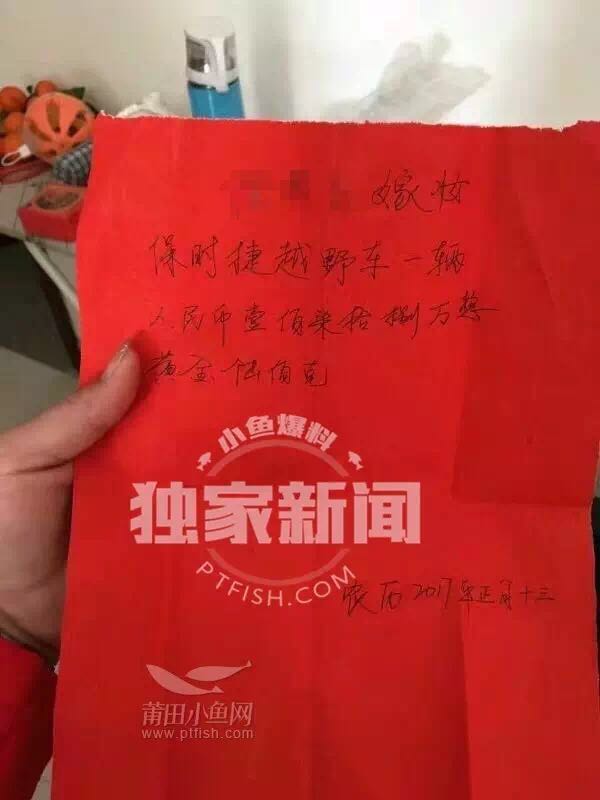 嫁妆
保时捷越野车一辆
人民币壹佰柒拾捌万整
黄金陆佰克
小鱼爆料
独家新闻
PTFISH.COM
农历2017年正月十三
莆田小鱼网
www.ptfish.com